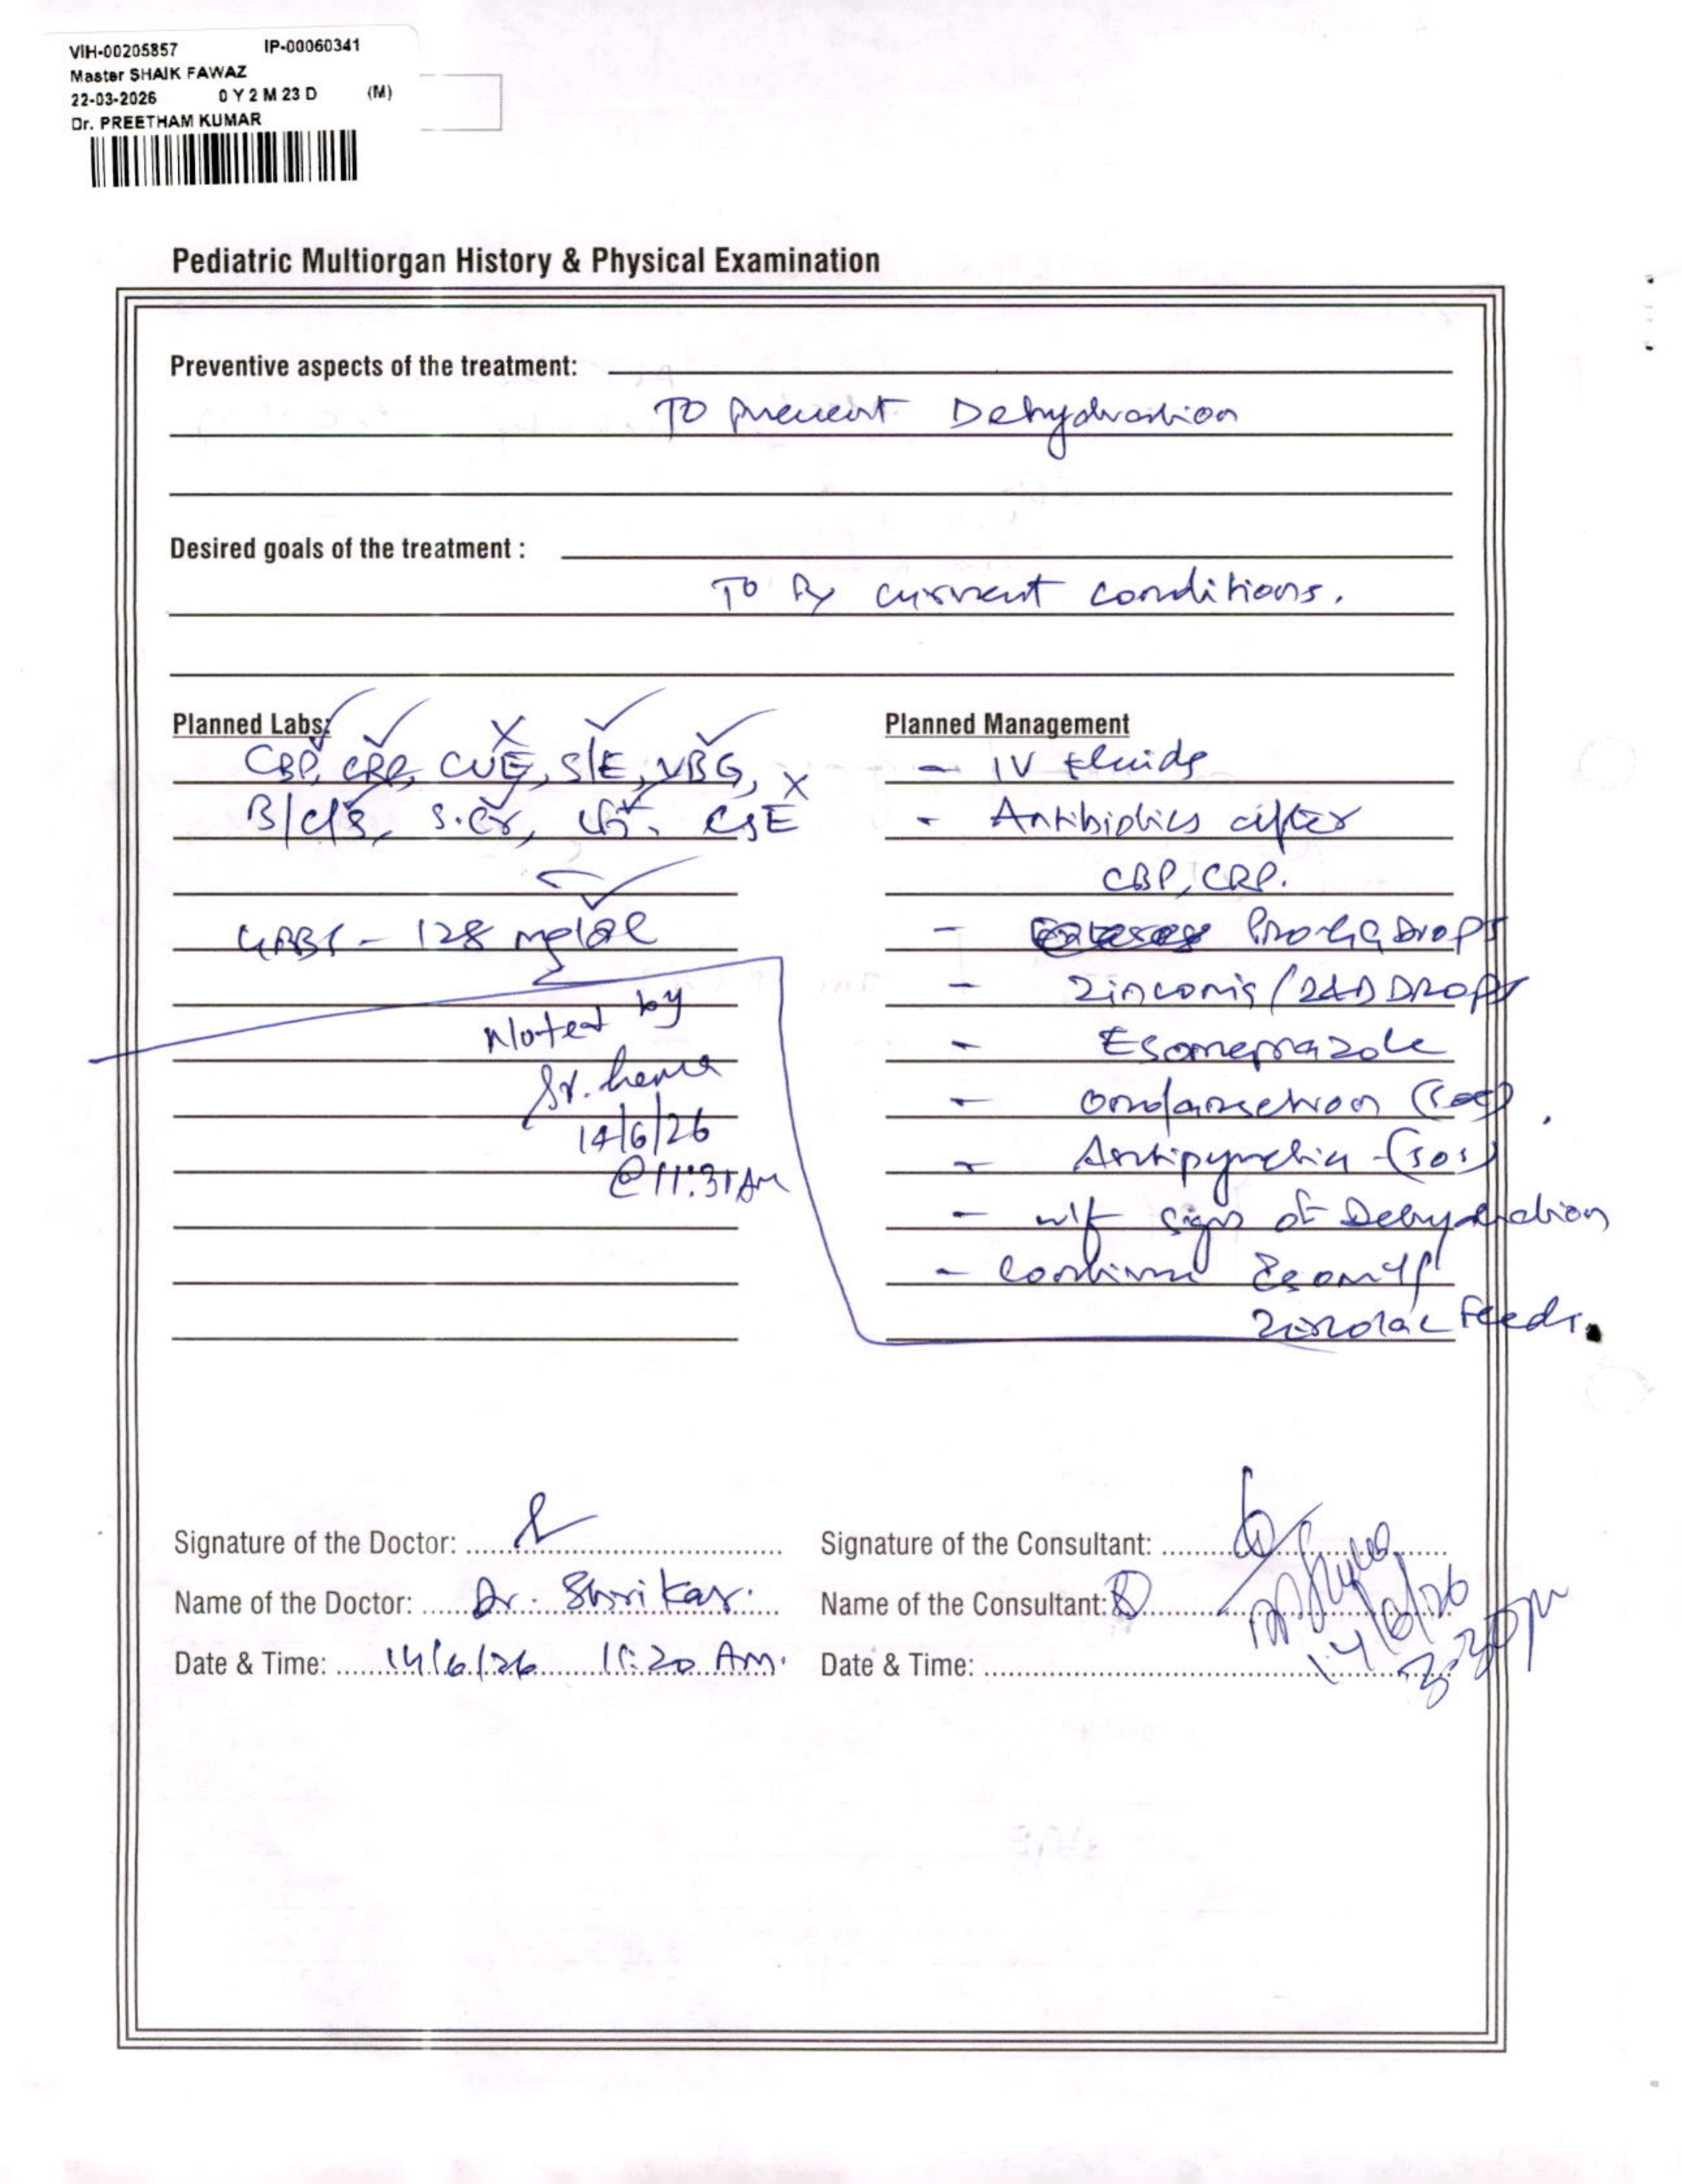 VIH-00205857 IP-00060341
Master SHAIK FAWAZ
22-03-2026 0 Y 2 M 23 D (M)
Dr. PREETHAM KUMAR
Pediatric Multiorgan History & Physical Examination
Preventive aspects of the treatment:
To prevent Dehydration
Desired goals of the treatment :
To Rx current conditions.
Planned Labs:
CBP, CRP, CUE, S/E, VBG,
B/c/s, S.Cr, CSE
GRBS - 128 mg/dl
Noted by
Sr. hema
14/6/26
@ 11:31 AM
Planned Management
- IV fluids
- Antibiotics after
CBP, CRP.
- Drops
- Zinconia / Z&D DROPS
- Esomeprazole
- ondansetron (sos).
- Antipyretic - (sos)
- w/f signs of Dehydration
- continue
Zerolac Feeds.
Signature of the Doctor:
Name of the Doctor: Dr. Shrikar.
Date & Time: 14/6/26 11:20 AM.
Signature of the Consultant:
Name of the Consultant:
Date & Time:
14/6/26
3:30pm